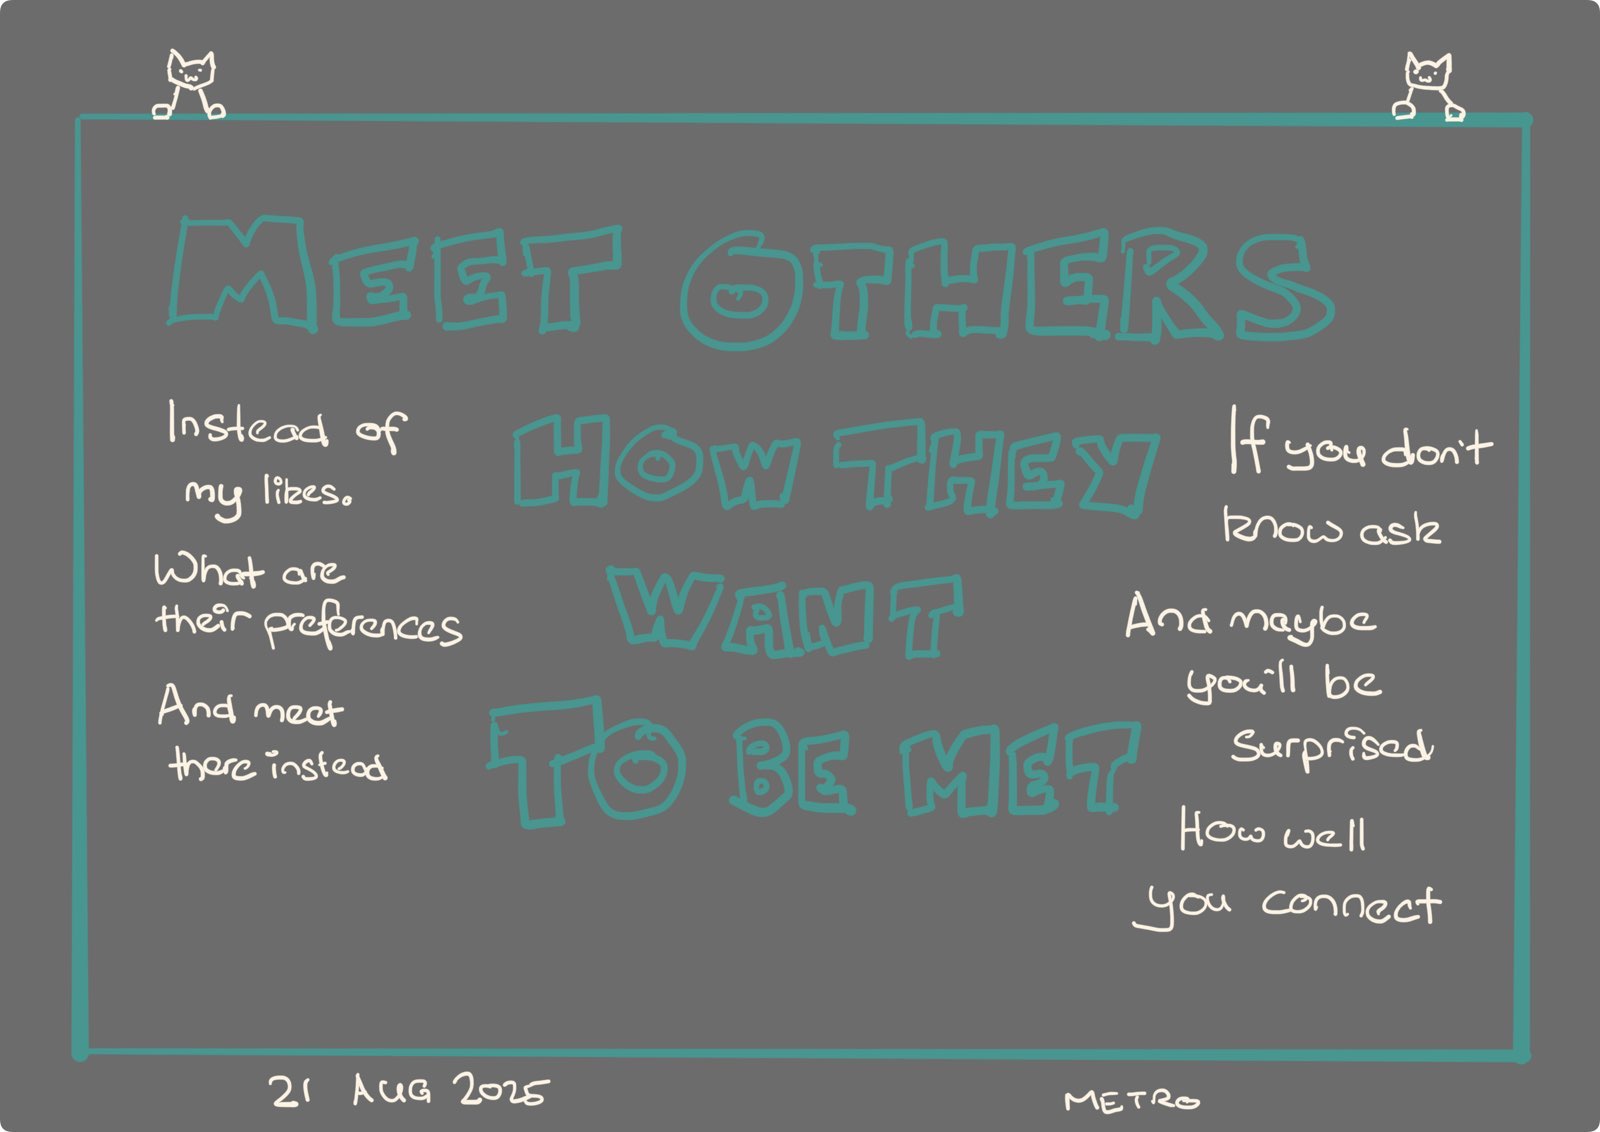 MEET OTHERS
HOW THEY
WANT
TO BE MET
Instead of
my likes.
What are
their preferences
And meet
there instead
If you don't
know ask
And maybe
you'll be
surprised
How well
you connect
21 AUG 2025
METRO